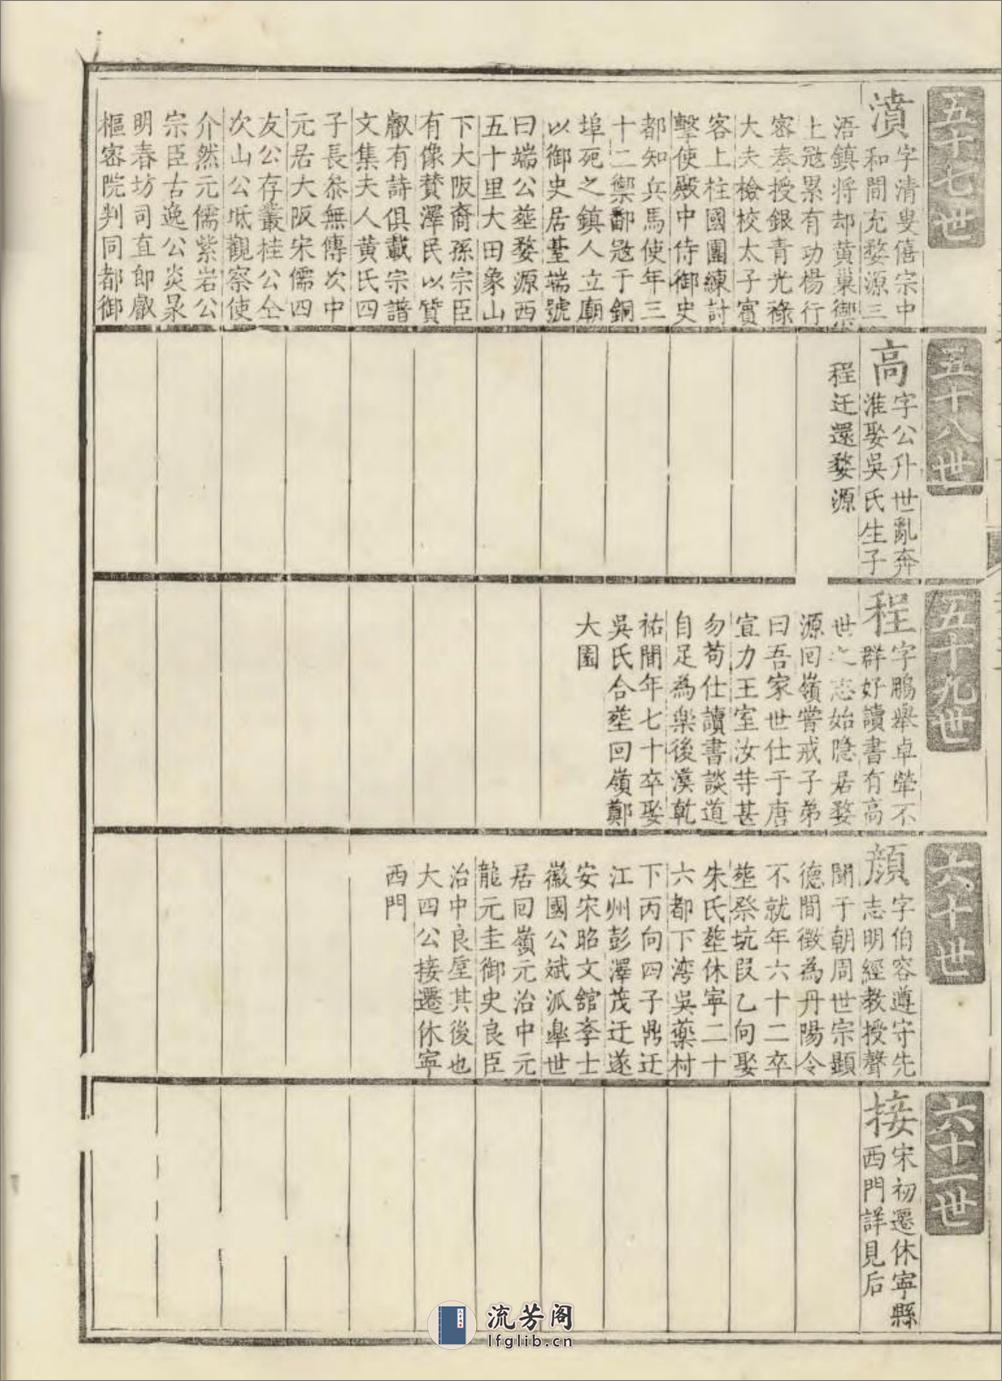 五十七世
濆
字清叟僖宗中
和間充婺源三
浯鎮将却黄巢禦
上㓂累有功楊行
密奏授銀青光祿
大夫檢校太子賓
客上柱國團練討
擊使殿中侍御史
都知兵馬使年三
十二禦鄱㓂于銅
埠死之鎮人立廟
以御史居䑓端號
曰端公塟婺源西
五十里大田象山
下大阪裔孫宗臣
有像賛澤民以質
叡有詩俱載宗譜
文集夫人黄氏四
子長叅無傳次中
元居大阪宋儒四
友公存叢桂公仝
次山公坻觀察使
介然元儒紫岩公
宗臣古逸公炎㫤
明春坊司直郎叡
樞密院判同都御
五十八世
高
字公升世亂奔
淮娶吳氏生子
程迁還婺源
五十九世
程
字鵬舉卓犖不
群好讀書有高
世之志始隐居婺
源回嶺嘗戒子弟
曰吾家世仕于唐
宣力王室汝等甚
勿苟仕讀書談道
自足為樂後漢乾
祐間年七十卒娶
吳氏合塟回嶺鄭
大園
六十世
顔
字伯容遵守先
志明經教授聲
聞于朝周世宗顯
德間徴為丹陽令
不就年六十二卒
塟祭坑叚乙向娶
朱氏塟休寧二十
六都下湾吳藥村
下丙向四子鼎迁
江州彭澤茂迁遂
安宋昭文舘李士
徽國公斌派臯世
居回嶺元治中元
龍元圭御史良臣
治中良垕其後也
大四公接遷休寧
西門
六十一世
接
宋初遷休寧縣
西門詳見后
流芳阁
lfglib.cn